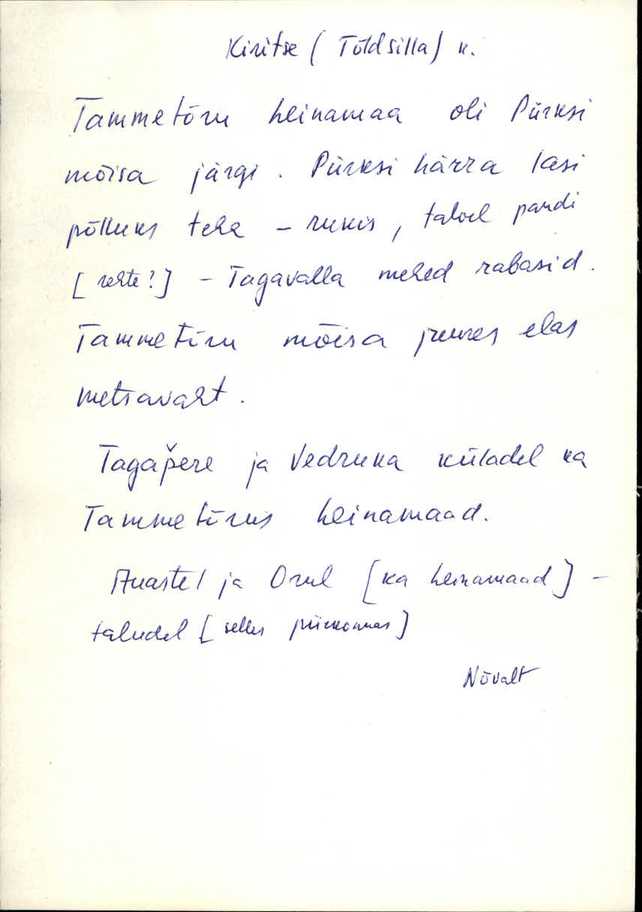 Kiritse (Tõldsilla) k.
Tammetõru heinamaa oli Pürksi
mõisa järgi. Pürksi härra lasi
põlluks teha – rukis, talvel pandi
[rehte?] – Tagavalla mehed rabasid.
Tammetõru mõisa juures elas
metsavaht.
Tagapere ja Vedruka küladel ka
Tammetõrus heinamaad.
ja Orul [ka heinamaad] –
taludel [selles piirkonnas]
Nõvalt